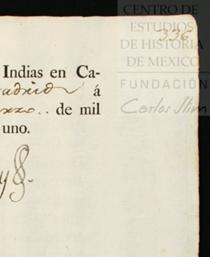 CENTRO DE
ESTUDIOS
DE HISTORIA
DE MEXICO
336
FUNDACIÓN
Carlos Slim
Indias en Ca-
Madrid á
Marzo.. de mil
uno.